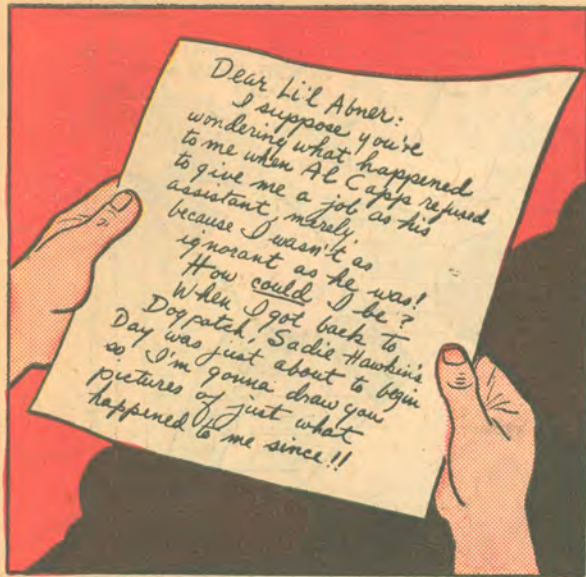 Dear Li'l Abner:
I suppose you're
wondering what happened
to me when Al Capp refused
to give me a job as his
assistant, merely
because I wasn't as
ignorant as he was!
How could I be?
When I got back to
Dogpatch, Sadie Hawkin's
Day was just about to begin
so I'm gonna draw you
pictures of just what
happened to me since!!